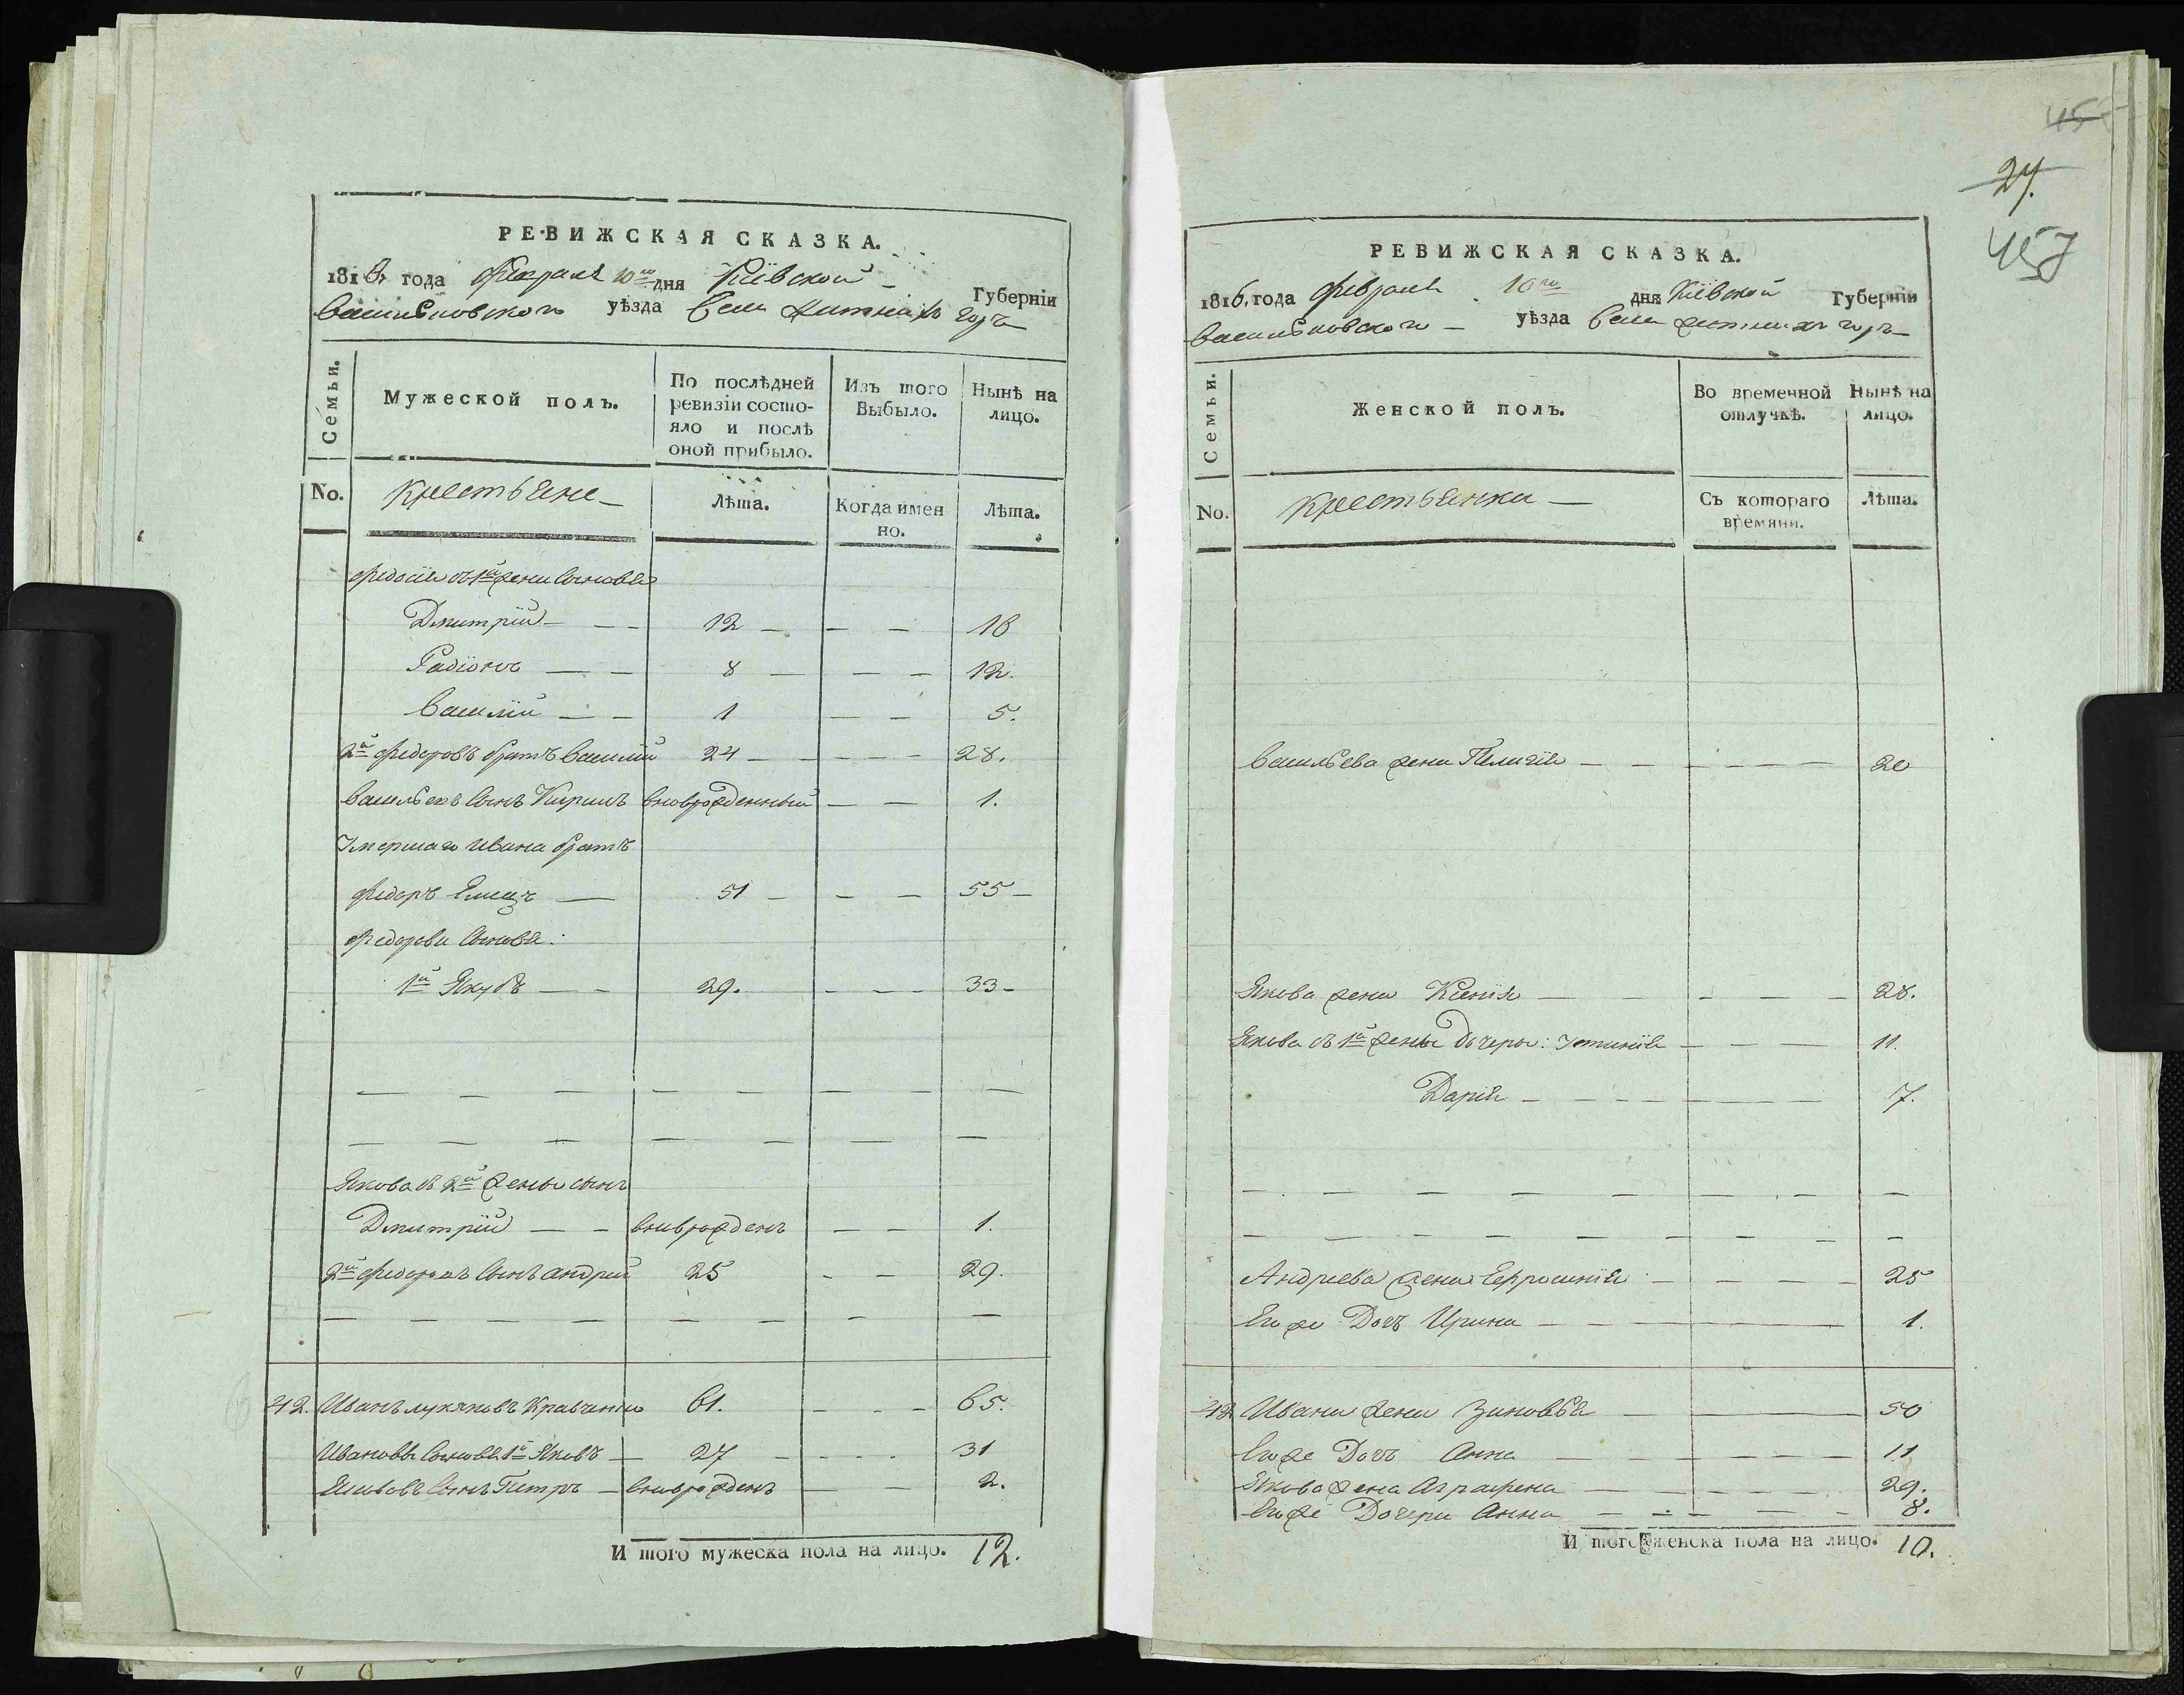 РЕВИЖСКАЯ СКАЗКА.
1816, года февраля 10го дня Кіевской Губерніи
Васильковскаго уѣзда Села Житныхъ горъ
Семьи.
Мужеской полъ.
По послѣдней ревизіи состояло и послѣ оной прибыло.
Изъ того Выбыло.
Нынѣ на лицо.
No.
Крестьяне
Лѣта.
Когда именно.
Лѣта.
съ 1й жени Сыновья
Дмитрій — — 12 — — — 16
Радіонъ — — 8 — — — 12.
Василій — — 1 — — 5.
2й Федоровъ братъ Василій 24 — — — — 28.
Васильевъ Сынъ Кирилъ вноврожденный — — 1.
Умершаго Ивана братъ
Федоръ — 51 — — — 55 —
Федорови Сыновья:
1й Якубъ — — 29. — — — 33 —
— — — — — — —
— — — — — — —
Якова съ 2й жены сынъ
Дмитрій — — вноврожденъ — — 1.
2й Федоровъ Сынъ Андрей 25 — — 29.
— — — — — — — — —
42. Иванъ Лукяновъ Кравченко 61. — — — 65.
Ивановы Сыновья 1й Яковъ — 27 — — — — 31
Яковъ Сынъ Петръ — вноврожденъ — — 2.
И того мужеска пола на лицо. 12.
45
27.
457
РЕВИЖСКАЯ СКАЗКА.
1816, года февраля 10го дня Кіевской Губерніи
Васильковскаго — уѣзда Села Житныхъ горъ
Семьи.
Женской полъ.
Во временной отлучкѣ.
Нынѣ на лицо.
No.
Крестьянки —
Съ котораго времяни.
Лѣта.
Васильева жена Пелагія — — — — — — 20
Якова жена Ксенія — — — — — 28.
Якова съ 1й жены дочеры: Устинія — — — — 11.
Дарія — — — — — — — — 7.
— — — — — — — — —
— — — — — — — — —
Андреева жена Ефросинія — — — — 25
Его же Дочь Ирина — — — — 1.
42 Ивана жена Зиновья — — 50
Его же Дочь Анна — — — — — — 11
Якова жена Аграфена — — — — — 29.
Его же Дочери Анна — — — — — 8.
И того женска пола на лицо. 10.